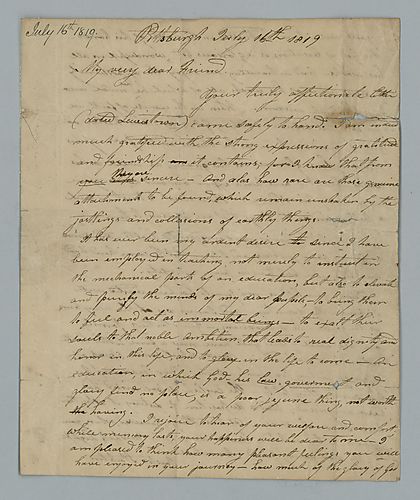 July 16th 1819.
Pittsburgh July 16th 1819
My very dear Friend
Your truly affectionate letter
(dated Lewistown) came safely to hand. I am
much gratified with the strong expressions of gratitude
and friendship it contains; for I know that from
you they are sincere – And alas how rare are those genuine
attachments to be found, which remain unshaken by the
jostlings and collisions of earthly things.
It has ever been my ardent desire since I have
been employed in teaching not merely to instruct in
the mechanical parts of an education, but also to elevate
and purify the minds of my dear pupils – to bring them
to feel and act as immortal beings – to exalt their
souls to that noble ambition, that leads to real dignity and
honor in this life, and to glory in the life to come – An
education, in which God – his law, government and
glory find no place, is a poor, jejune thing, not worth
having. I rejoice to hear of your welfare and comfort
While memory lasts, your happiness will be dear to me – I
am pleased to think how many pleasant feelings you will
have enjoyed in your journey – how much of the glory of God